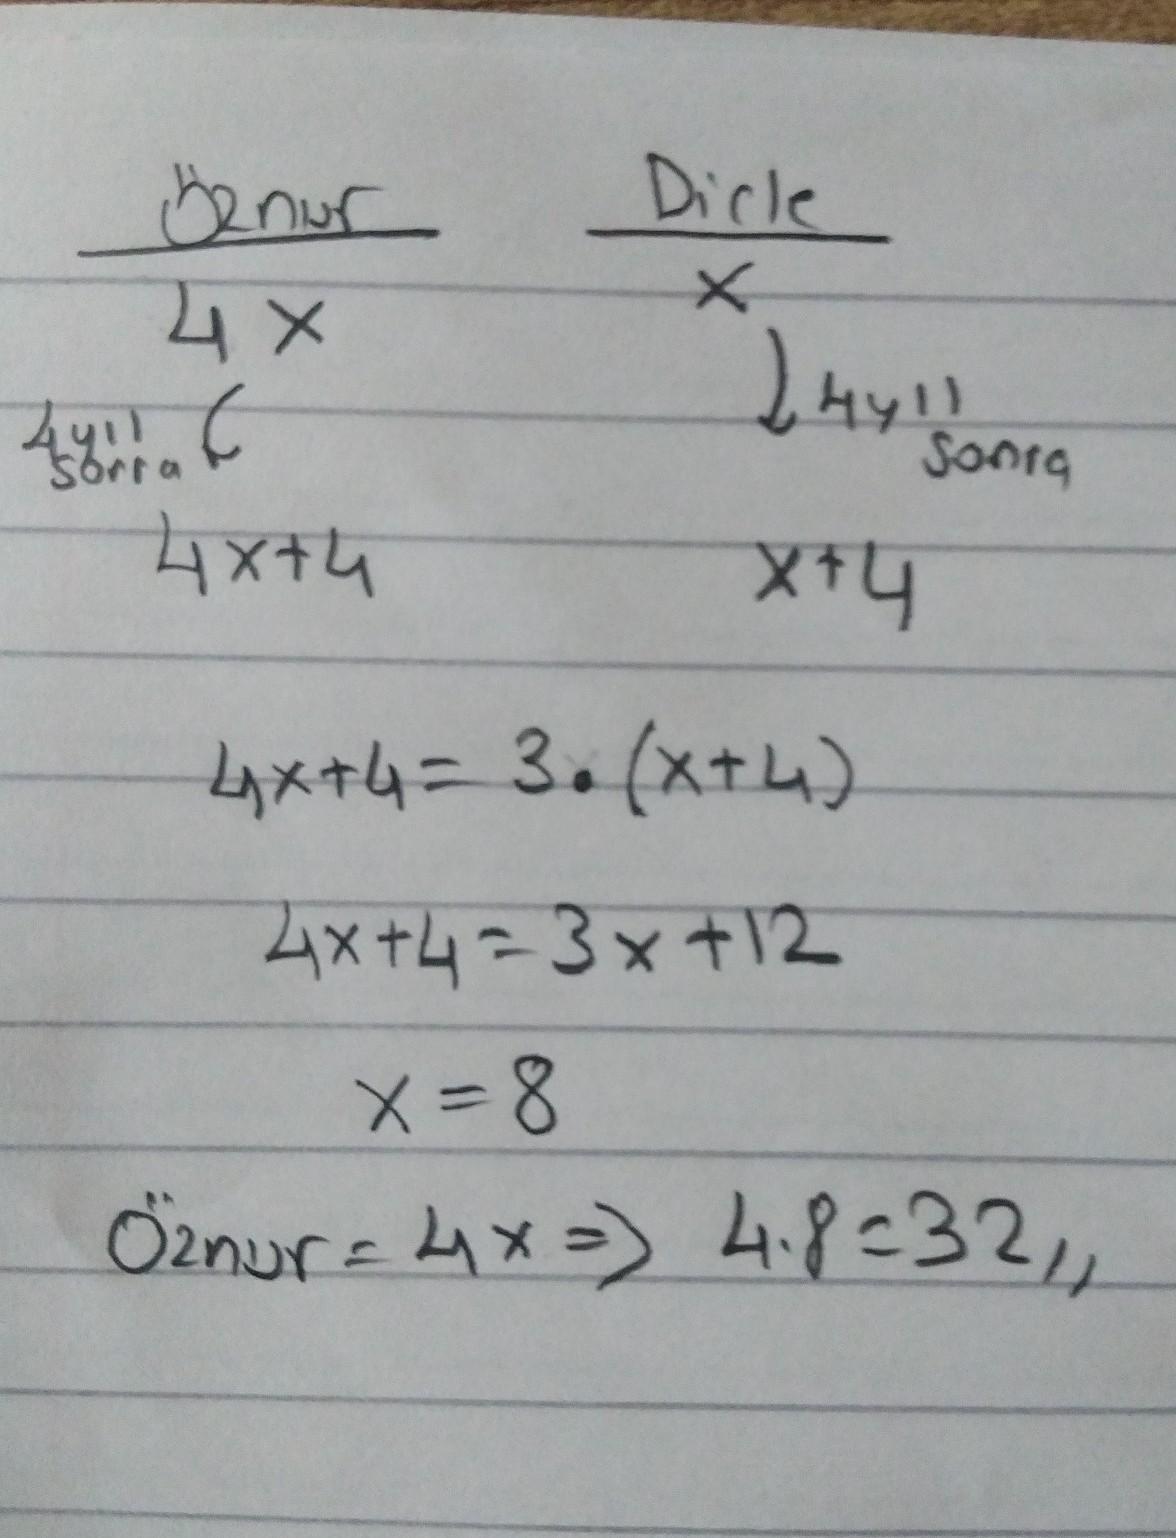 Öznur Dicle
4x x
4yıl sonra 4yıl sonra
4x+4 x+4
4x+4= 3.(x+4)
4x+4=3x+12
x=8
Öznur=4x=> 4.8=32,,